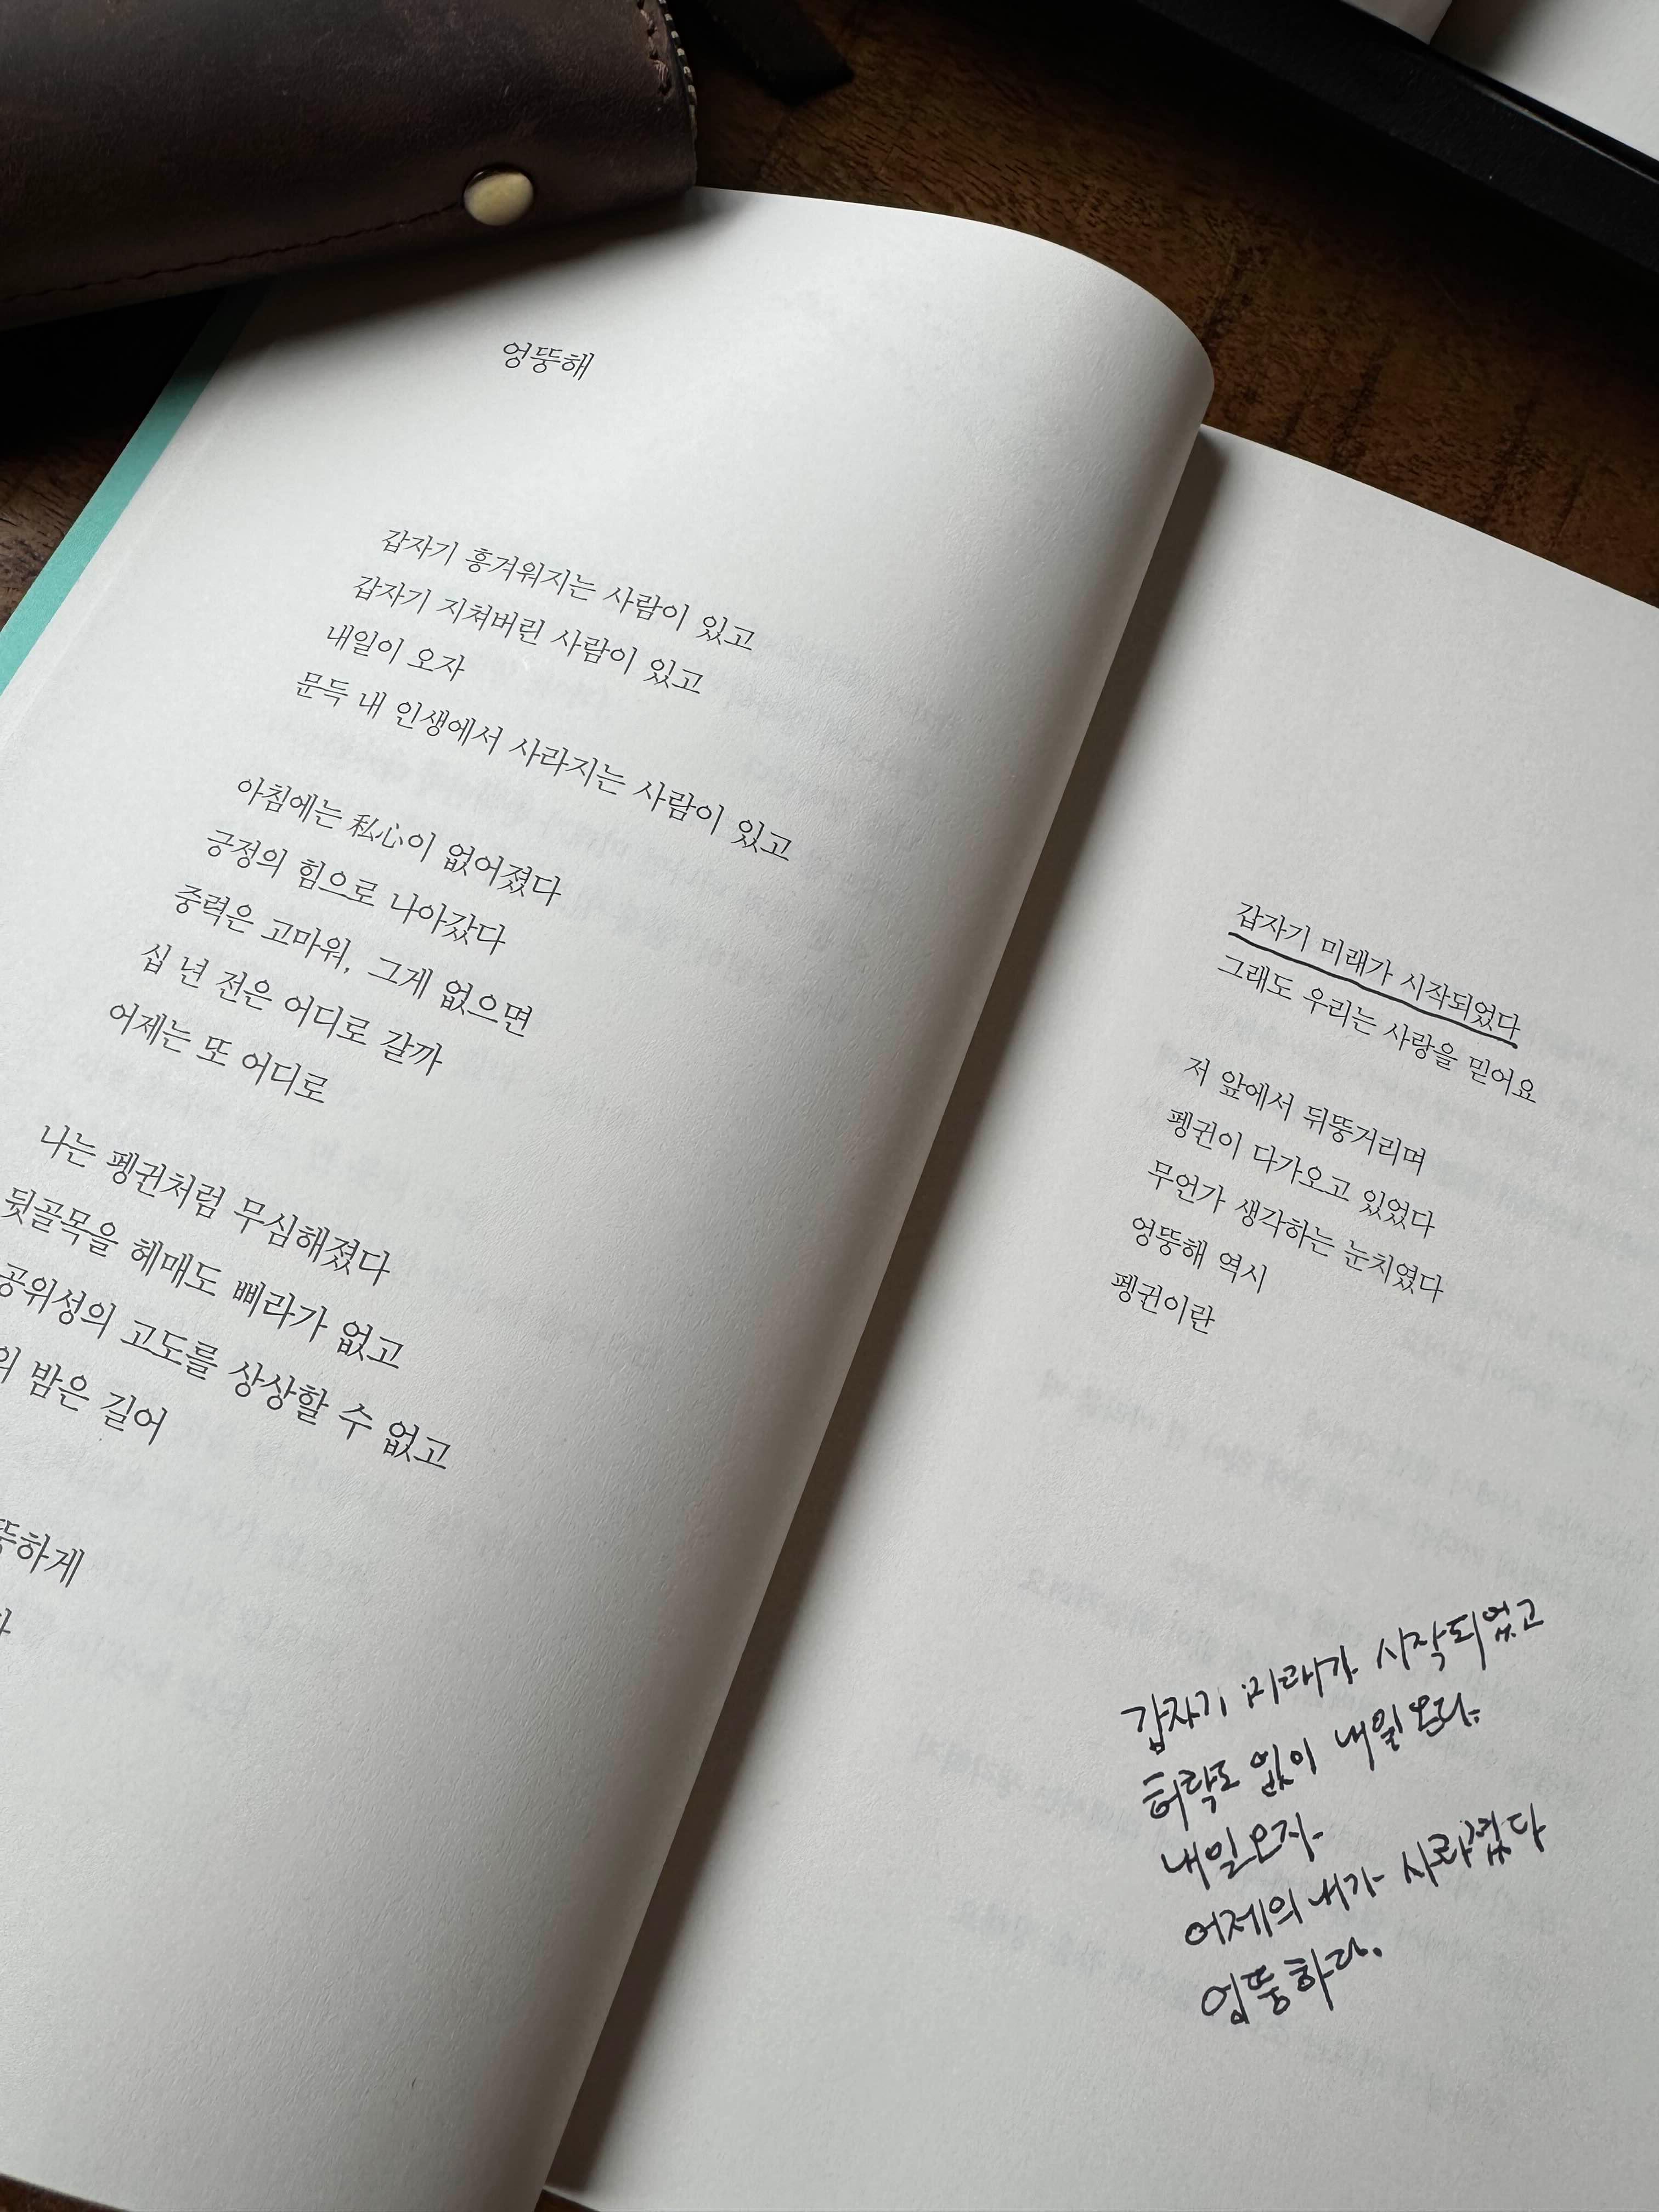 엉뚱해
갑자기 흥겨워지는 사람이 있고
갑자기 지쳐버린 사람이 있고
내일이 오자
문득 내 인생에서 사라지는 사람이 있고
아침에는 私心이 없어졌다
긍정의 힘으로 나아갔다
중력은 고마워, 그게 없으면
십 년 전은 어디로 갈까
어제는 또 어디로
나는 펭귄처럼 무심해졌다
뒷골목을 헤매도 삐라가 없고
공위성의 고도를 상상할 수 없고
의 밤은 길어
뚱하게
갑자기 미래가 시작되었다
그래도 우리는 사랑을 믿어요
저 앞에서 뒤뚱거리며
펭귄이 다가오고 있었다
무언가 생각하는 눈치였다
엉뚱해 역시
펭귄이란
갑자기 미래가 시작되었고
허락도 없이 내일 온다.
내일 오자
어제의 내가 사라졌다
엉뚱하다.